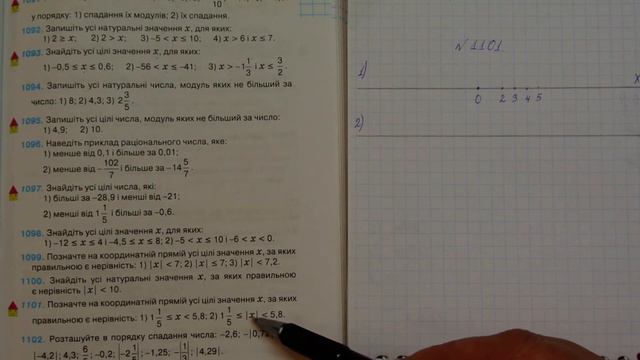 у порядку: 1) спадання їх модулів; 2) їх спадання.
1092. Запишіть усі натуральні значення x, для яких:
1) 2 ≥ x; 2) 2 > x; 3) −5 < x ≤ 10; 4) x > 6 і x ≤ 7.
1093. Знайдіть усі цілі значення x, для яких:
1) −0,5 ≤ x ≤ 0,6; 2) −56 < x ≤ −41; 3) x > −1 1/3 і x ≤ 3/2.
1094. Запишіть усі натуральні числа, модуль яких не більший за
число: 1) 8; 2) 4,3; 3) 2 3/5.
1095. Запишіть усі цілі числа, модуль яких не більший за число:
1) 4,9; 2) 10.
1096. Наведіть приклад раціонального числа, яке:
1) менше від 0,1 і більше за 0,01;
2) менше від −102/7 і більше за −14 5/7.
1097. Знайдіть усі цілі числа, які:
1) більші за −28,9 і менші від −21;
2) менші від 1 1/5 і більші за −0,6.
1098. Знайдіть усі цілі значення x, для яких:
1) −12 ≤ x ≤ 4 і −4,5 ≤ x ≤ 8; 2) −5 < x ≤ 10 і −6 < x < 0.
1099. Позначте на координатній прямій усі цілі значення x, за яких
правильною є нерівність: 1) |x| < 7; 2) |x| ≤ 7; 3) |x| < 7,2.
1100. Знайдіть усі натуральні значення x, за яких правильною
є нерівність |x| < 10.
1101. Позначте на координатній прямій усі цілі значення x, за яких
правильною є нерівність: 1) 1 1/5 ≤ x < 5,8; 2) 1 1/5 ≤ |x| < 5,8.
1102. Розташуйте в порядку спадання числа: −2,6; −|0,72
|−4,2|; 4,3; 6/5; −0,2; −1,25; |4,29|.
№ 1101
1)
x
0 2 3 4 5
2)